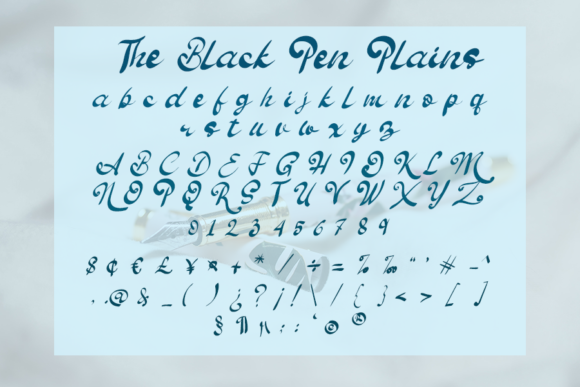 The Black Pen Plains
a b c d e f g h i j k l m n o p q
r s t u v w x y z
A B C D E F G H I J K L M
N O P Q R S T U V W X Y Z
0 1 2 3 4 5 6 7 8 9
$ ¢ € £ ¥ ¤ + * / ÷ = % ‰ “ ’ # - ^
. . @ & _ ( ) ¿ ? ¡ ! \ / { } < > [ ]
§ ¶ : ; ‘ © ®